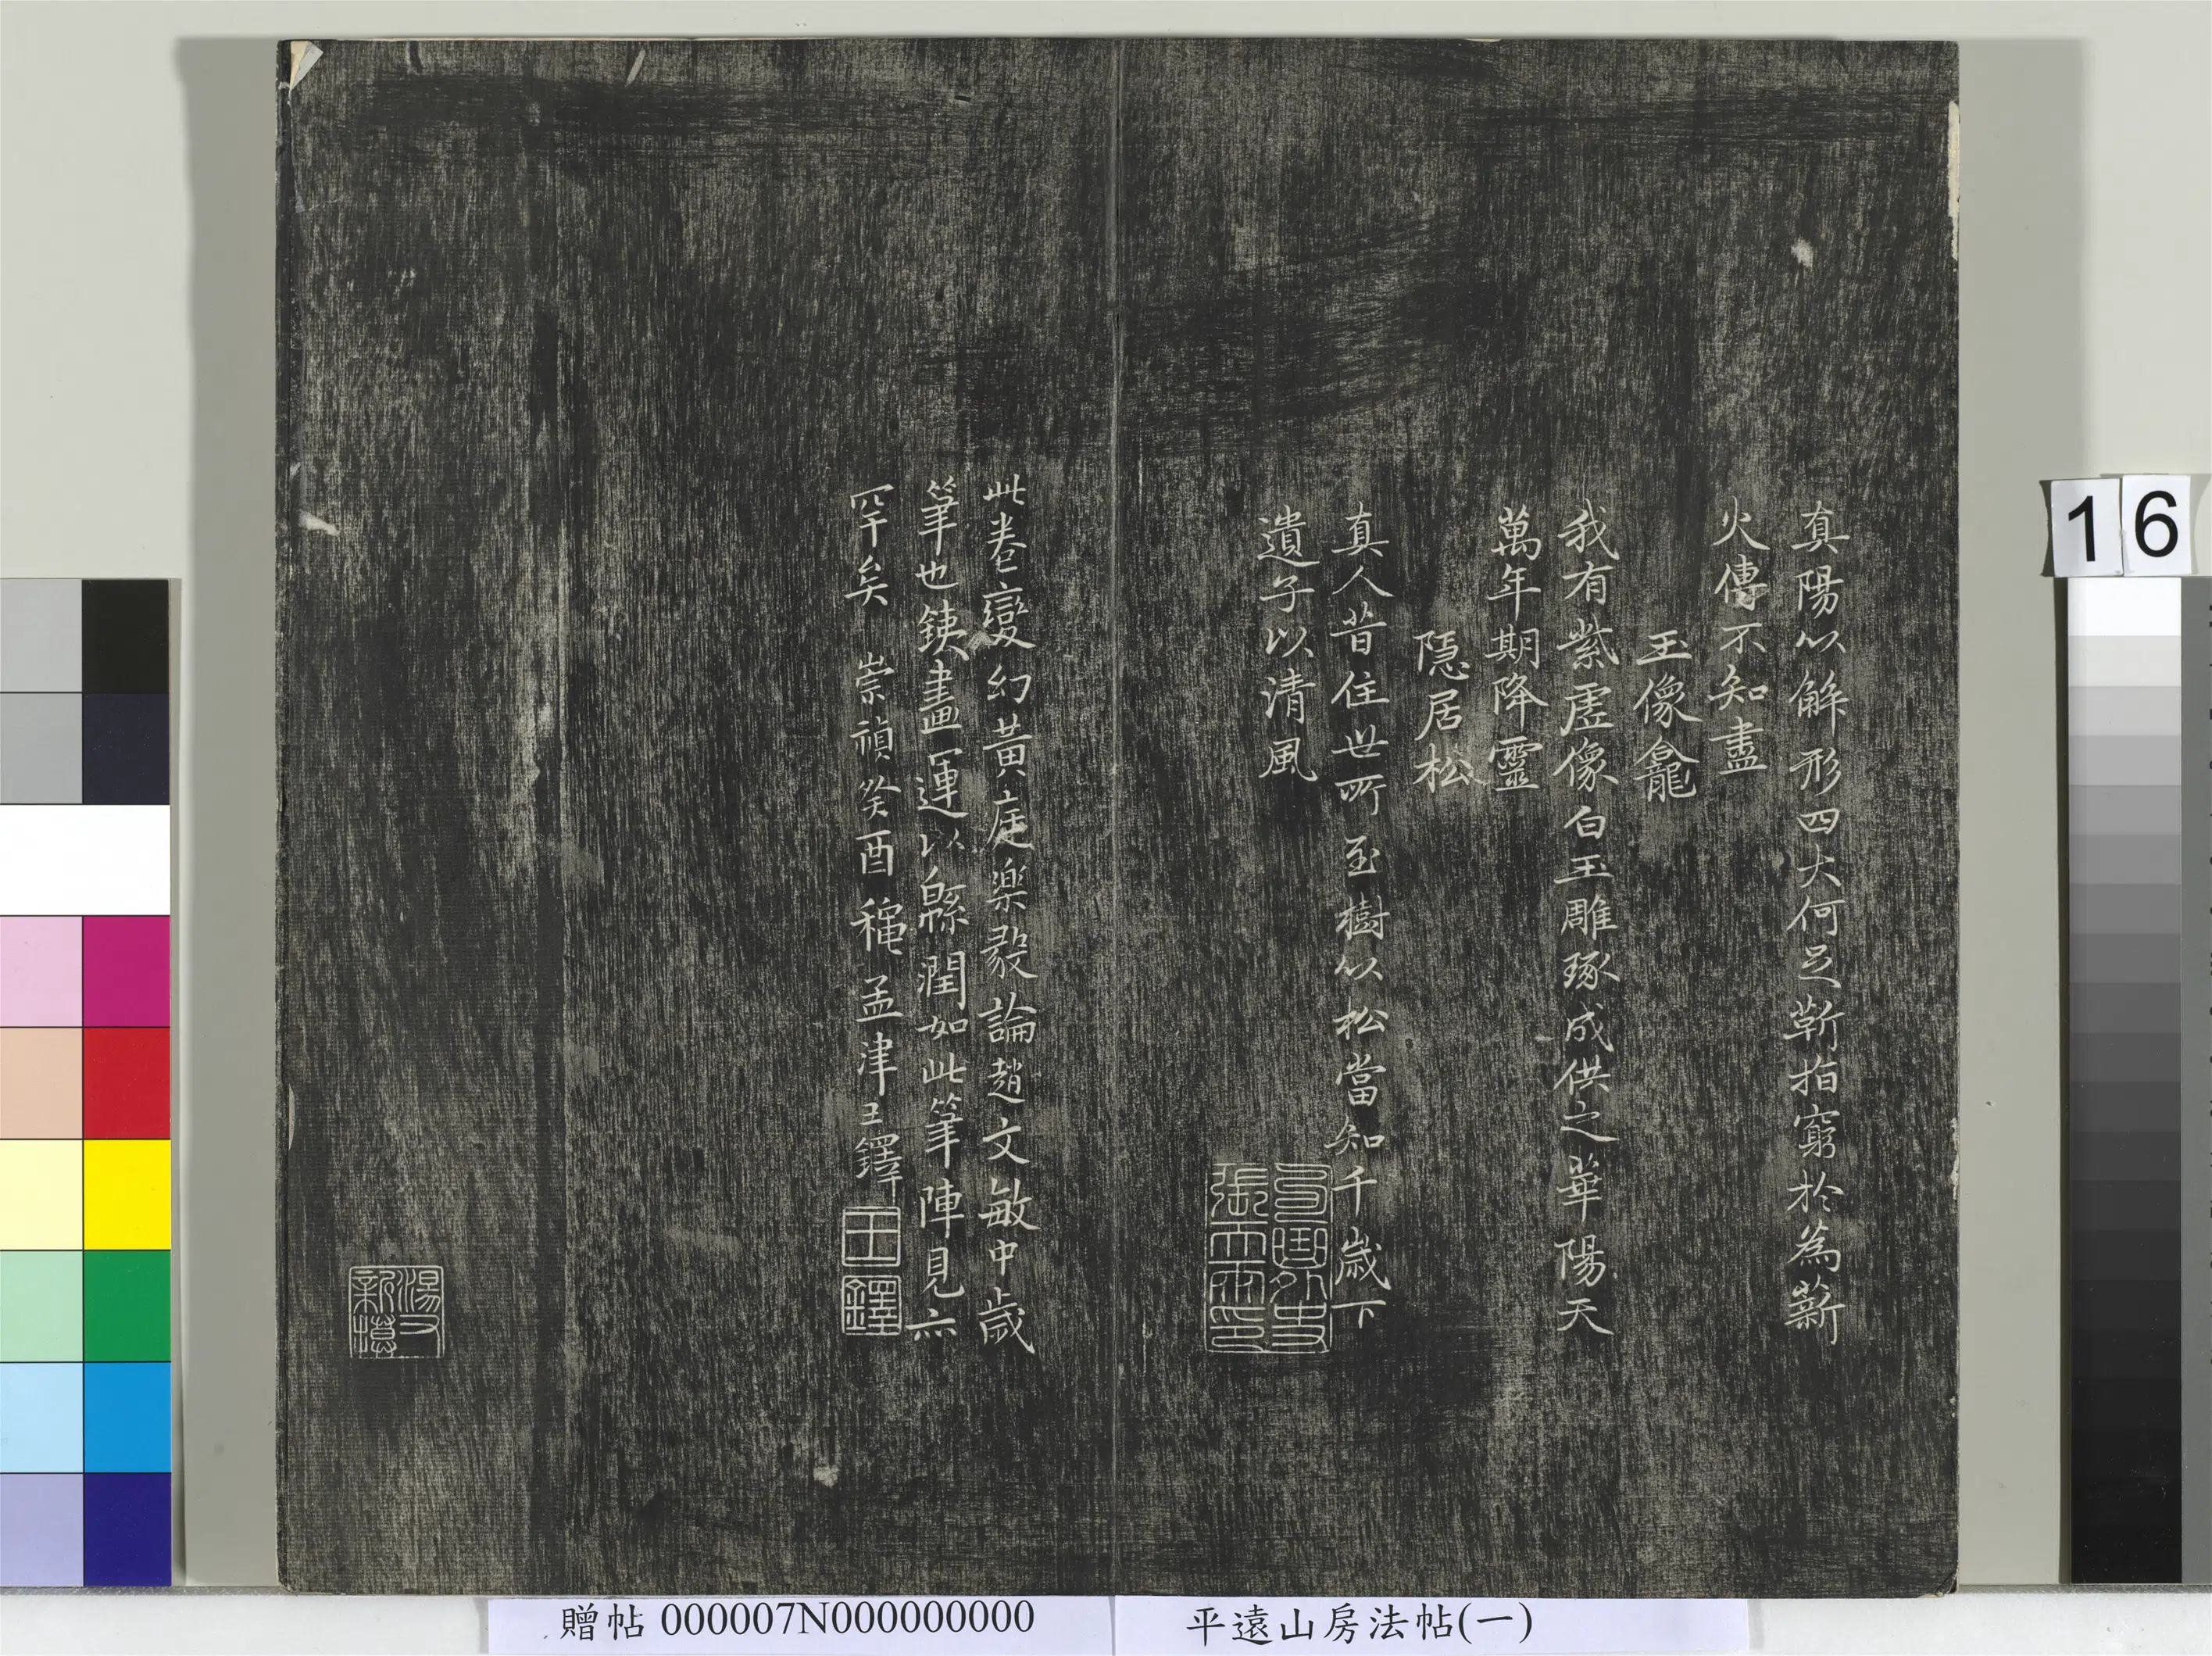 真陽以解形四大何足蘄指窮於為薪
火傳不知盡
玉像龕
我有紫虛像白玉雕琢成供之華陽天
萬年期降靈
隱居松
真人昔住世所至樹以松當知千歲下
遺子以清風
句曲外史
張天雨印
此卷變幻黃庭樂毅論趙文敏中歲
筆也銕畫一運以緜潤如此筆陣見亦
罕矣 崇禎癸酉 孟津王鐸
王鐸
湯又新摸
贈帖 000007N000000000
平遠山房法帖(一)
16